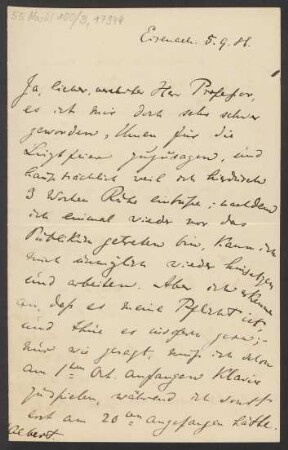 55 Nachl 100/B, 17344
Eisenach. 5.9.86.
Ja, lieber, verehrter Herr Professor,
es ist mir doch sehr schwer
geworden, Ihnen für die
zuzusagen, und
hauptsächlich weil ich hierdurch
3 Wochen Ruhe einbüsse; nachdem
ich einmal wieder vor das
Publikum getreten bin, kann ich
mich unmöglich wieder hinsetzen
und arbeiten. Aber ich erkenne
an, daß es meine Pflicht ist,
und thue es insofern gern;
nur wie gesagt, muß ich schon
am 1ten Oct. anfangen Klavier
zu spielen, während ich sonst
erst am 20ten angefangen hätte.
d'Albert.